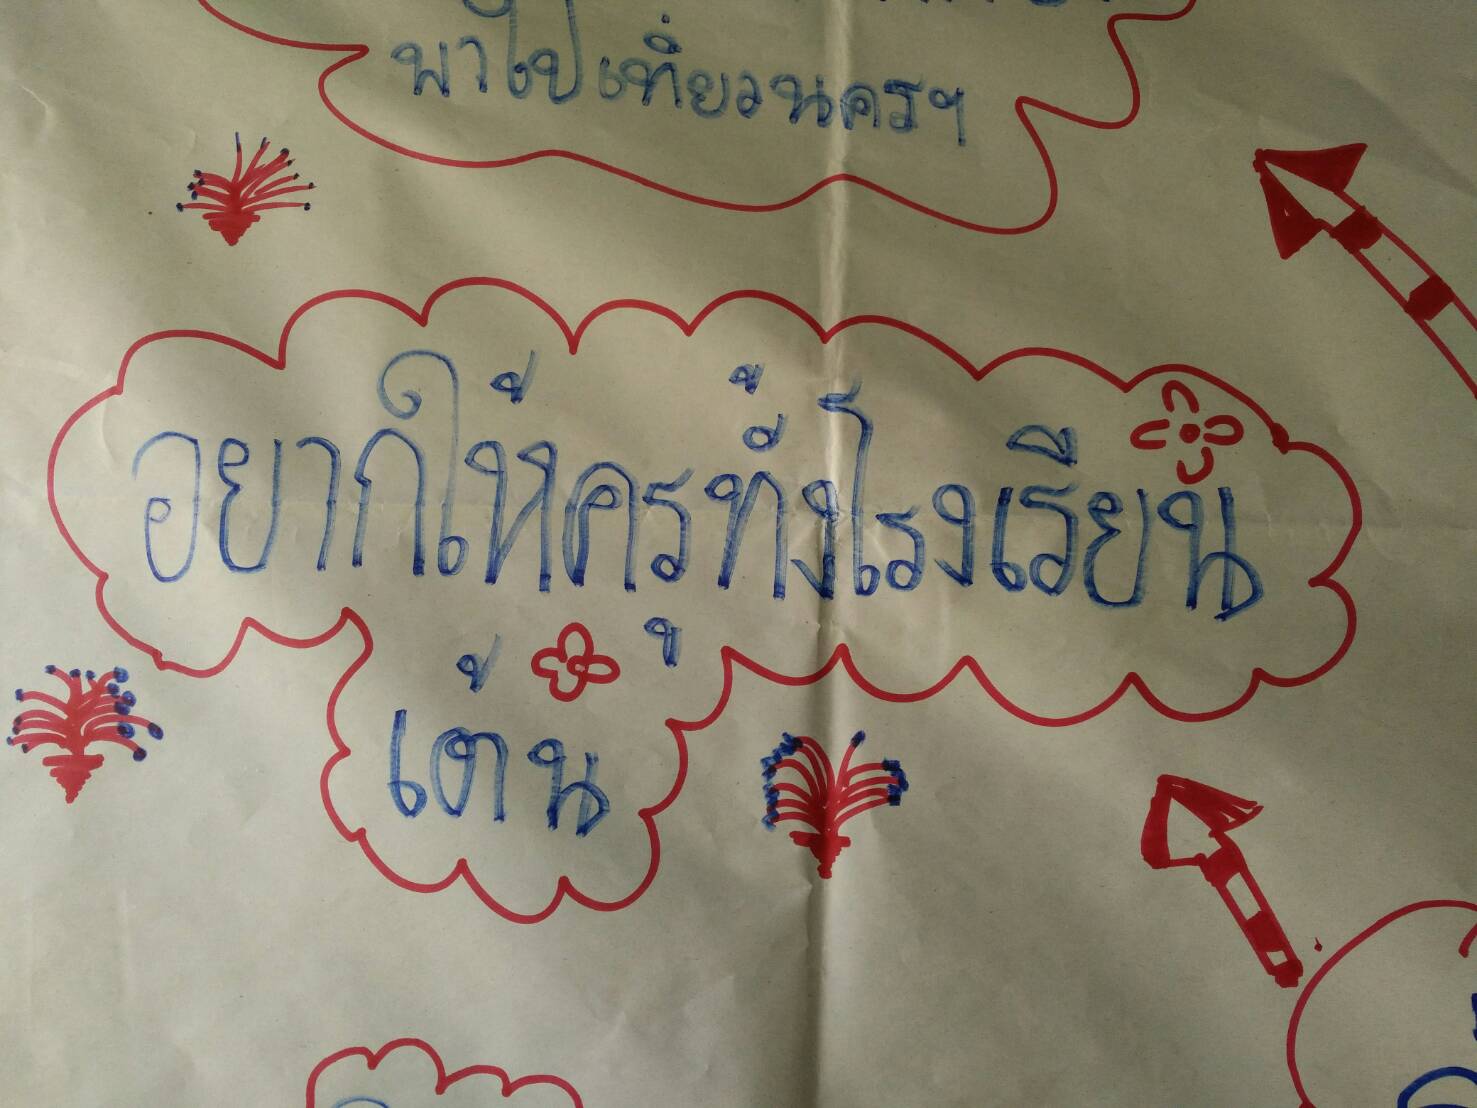 พาไปเที่ยวนครฯ
อยากให้ครูทั้งโรงเรียน
เต้น